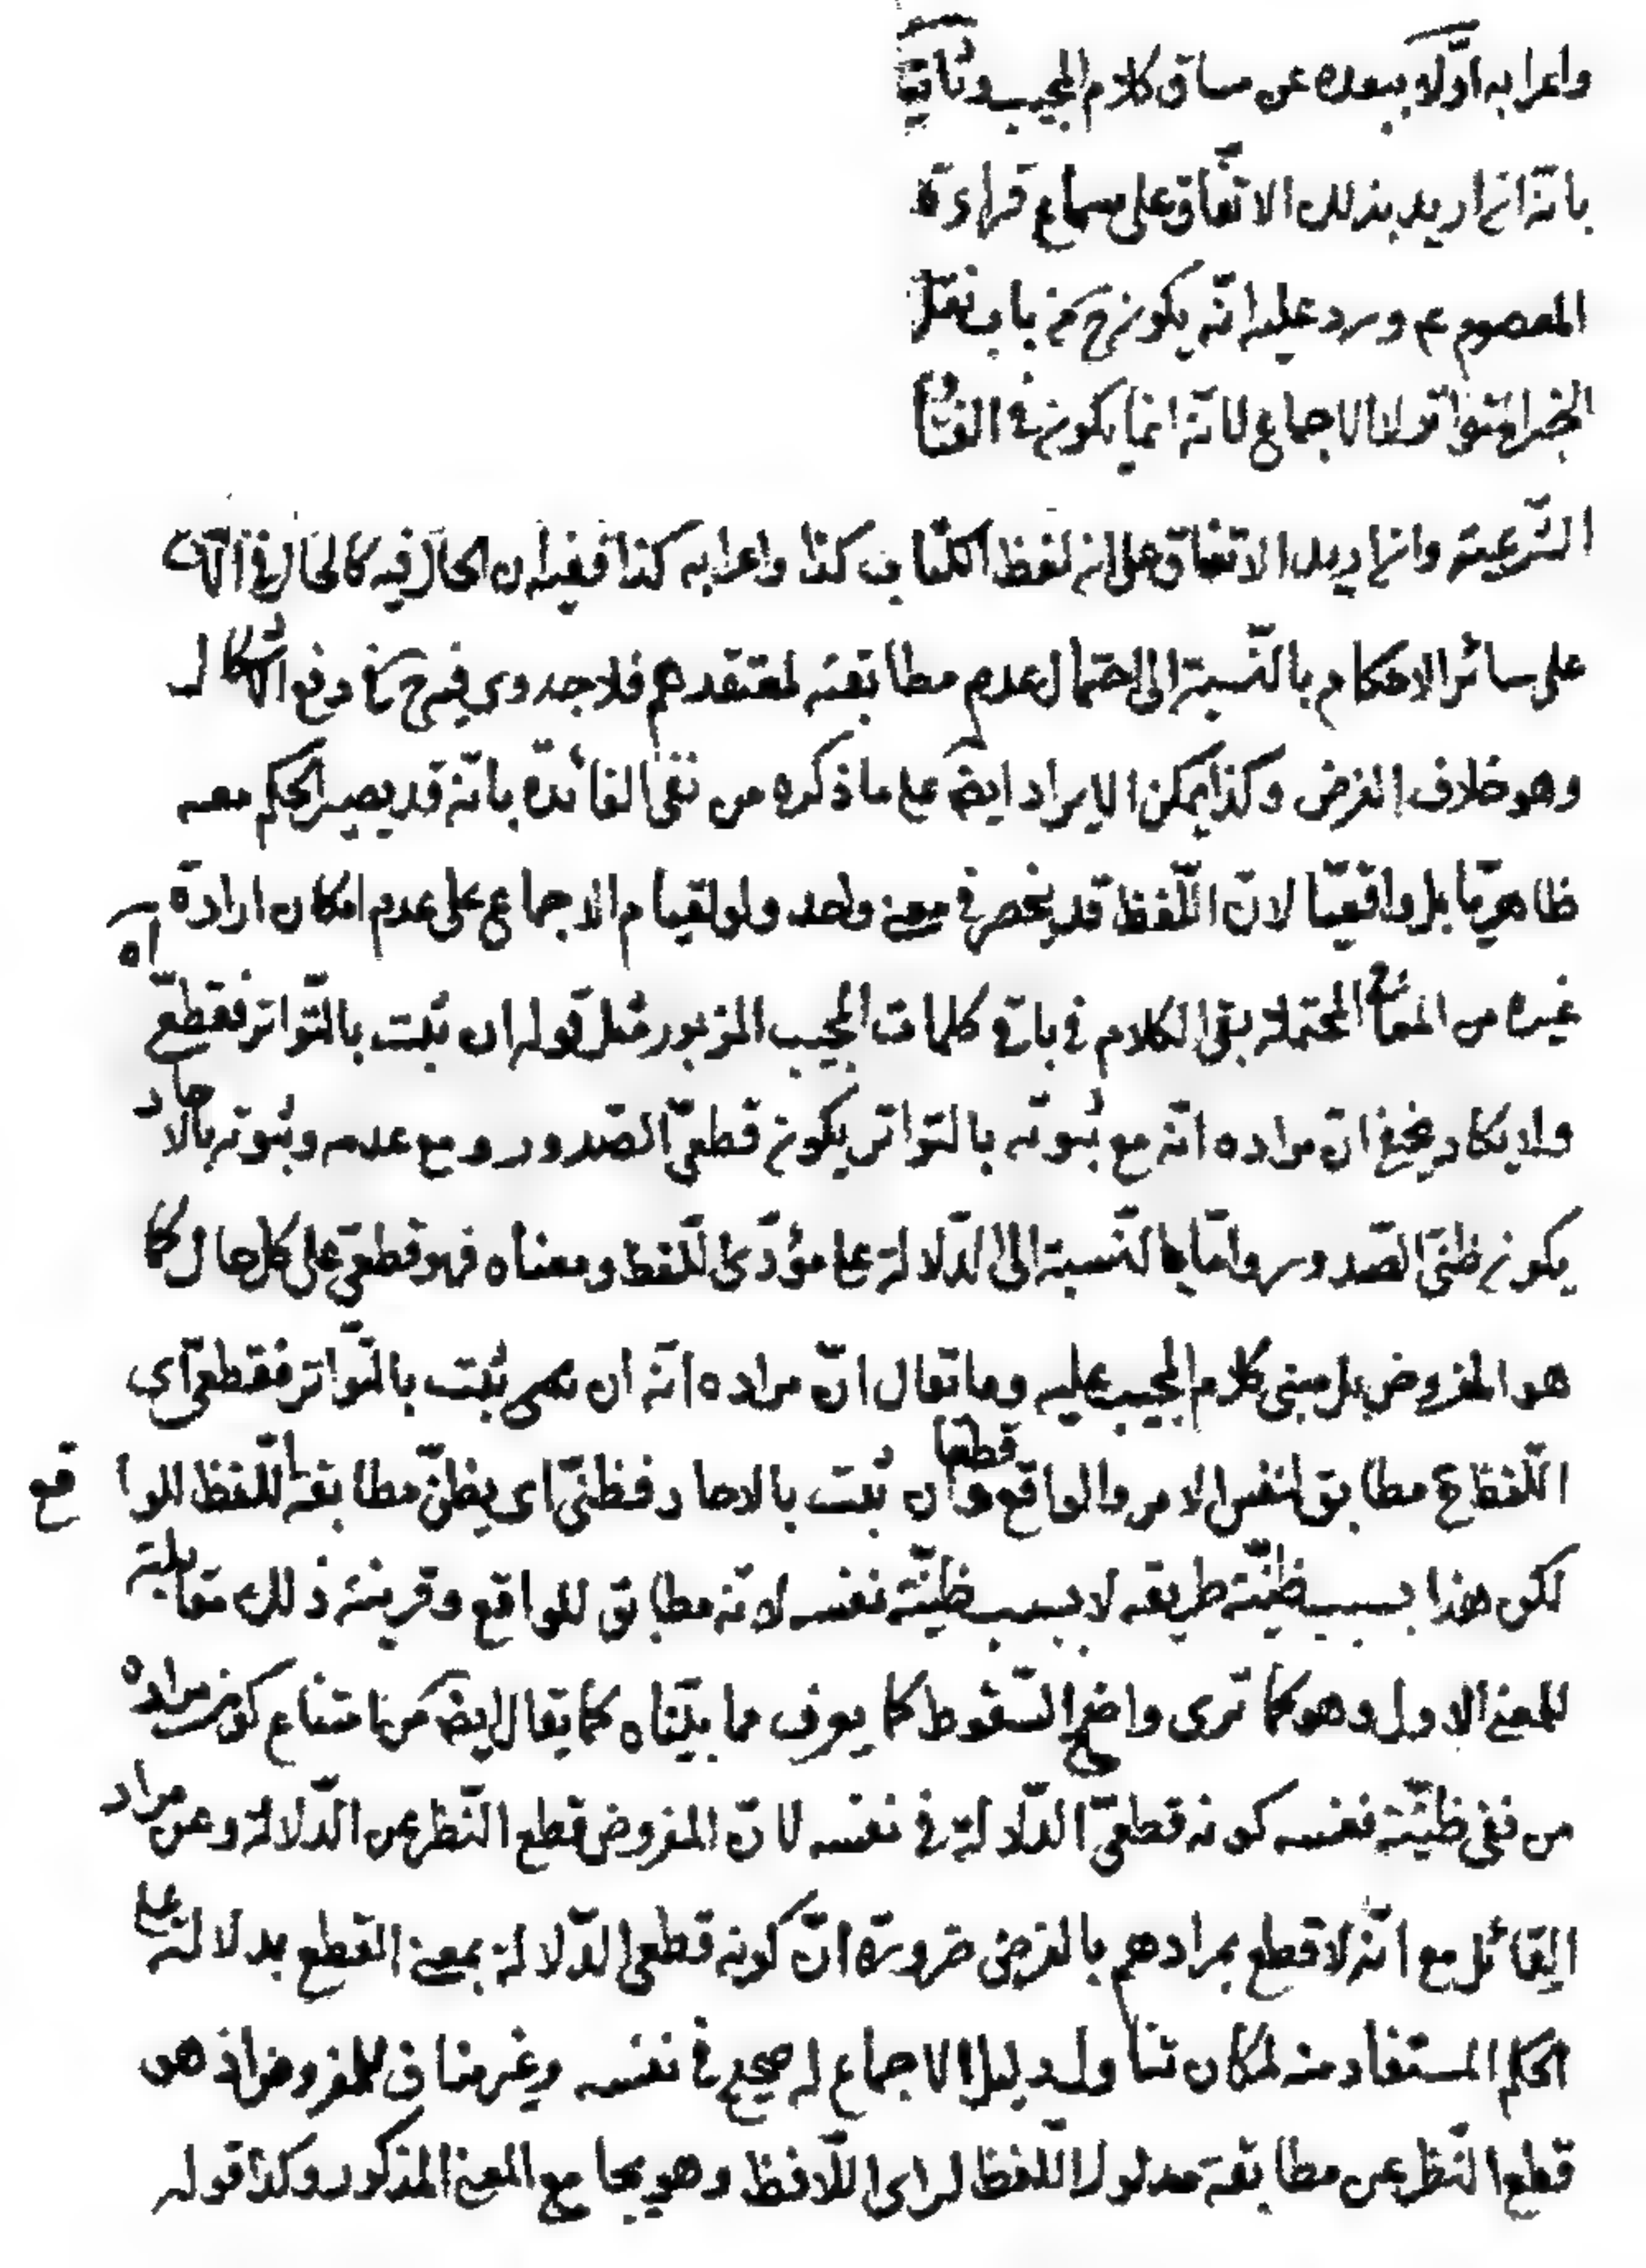 واعرابه اوّلا ببعده عن مساق كلام المجيب وثانيا
بانّه ان اريد بذلك الاتّفاق على سماع قراءة
المعصوم ع ورد عليه انّه يكون ح من باب نقل
الخبر المتواتر لا الاجماع لانّه انما يكون في الفتا
الشّرعيّة وان اريد الاتفاق على ان لفظ الكتاب كذا واعرابه كذا ففيه ان الحال فيه كالحال في اتّفاق
على سائر الاحكام بالنّسبة الى احتمال عدم مطابقته لمعتقدهم فلا جدوى فيه ح في دفع الاشكال
وهو خلاف الغرض وكذا يمكن الايراد ايضا على ما ذكره من نفى الفائدة بانّه قد يصير الحكم معه
ظاهريّا بل واقعيّا لانّ اللّفظ قد ينحصر في معنى واحد ولو لقيام الاجماع على عدم امكان ارادة
غيره من المعاني المحتملة بقى الكلام في باقي كلمات المجيب المزبور مثل قوله ان ثبت بالتّواتر فقطعيّ اه
ولا يكاد يخفى انّ مراده انّه مع ثبوته بالتواتر يكون قطعيّ الصّدور ومع عدمه وثبوته بالاحاد
يكون ظنّى الصّدور وامّا بالنّسبة الى الدّلالة على مؤدّى اللّفظ ومعناه فهو قطعيّ على كل حال كما
هو المفروض بل مبنى كلام المجيب عليه وما تقال انّ مراده انّه ان ثبت بالتّواتر فقطعيّ اى
اللّفظ ح مطابق لنفس الامر والواقع قطعا وان ثبت بالاحاد فظنّى اى يظنّ مطابقة اللّفظ للواقع
لكن هذا بسبب ظنّيّة طريقه لا بسبب ظنّيّة نفسه لانّه مطابق للواقع وقرينة ذلك مقابلته
للمعنى الاول وهو كما ترى واضح السّقوط كما يعرف مما بيّنّاه كما يقال ايضا من امتناع كون مراده
من نفى ظنّيّة نفسه كونه قطعيّ الدّلالة في نفسه لانّ المفروض قطع النّظر عن الدّلالة وعن مراد
القائل مع انّه لا قطع بمرادهم بالفرض ضرورة انّ كونه قطعى الدّلالة بمعنى القطع بدلالته على
الحكم المستفاد منه لمكان تناول دليل الاجماع له صحيح في نفسه وغير مناف للمفروض اذ هو
قطع النّظر عن مطابقة مدلول اللّفظ لراى اللّافظ وهو يجامع المعنى المذكور وكذا قوله